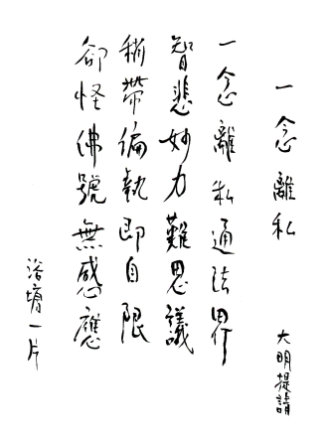 一念離私
大明提請
一念離私通法界
智悲妙力難思議
稍帶偏執即自限
卻怪佛號無感應
浴墉一片